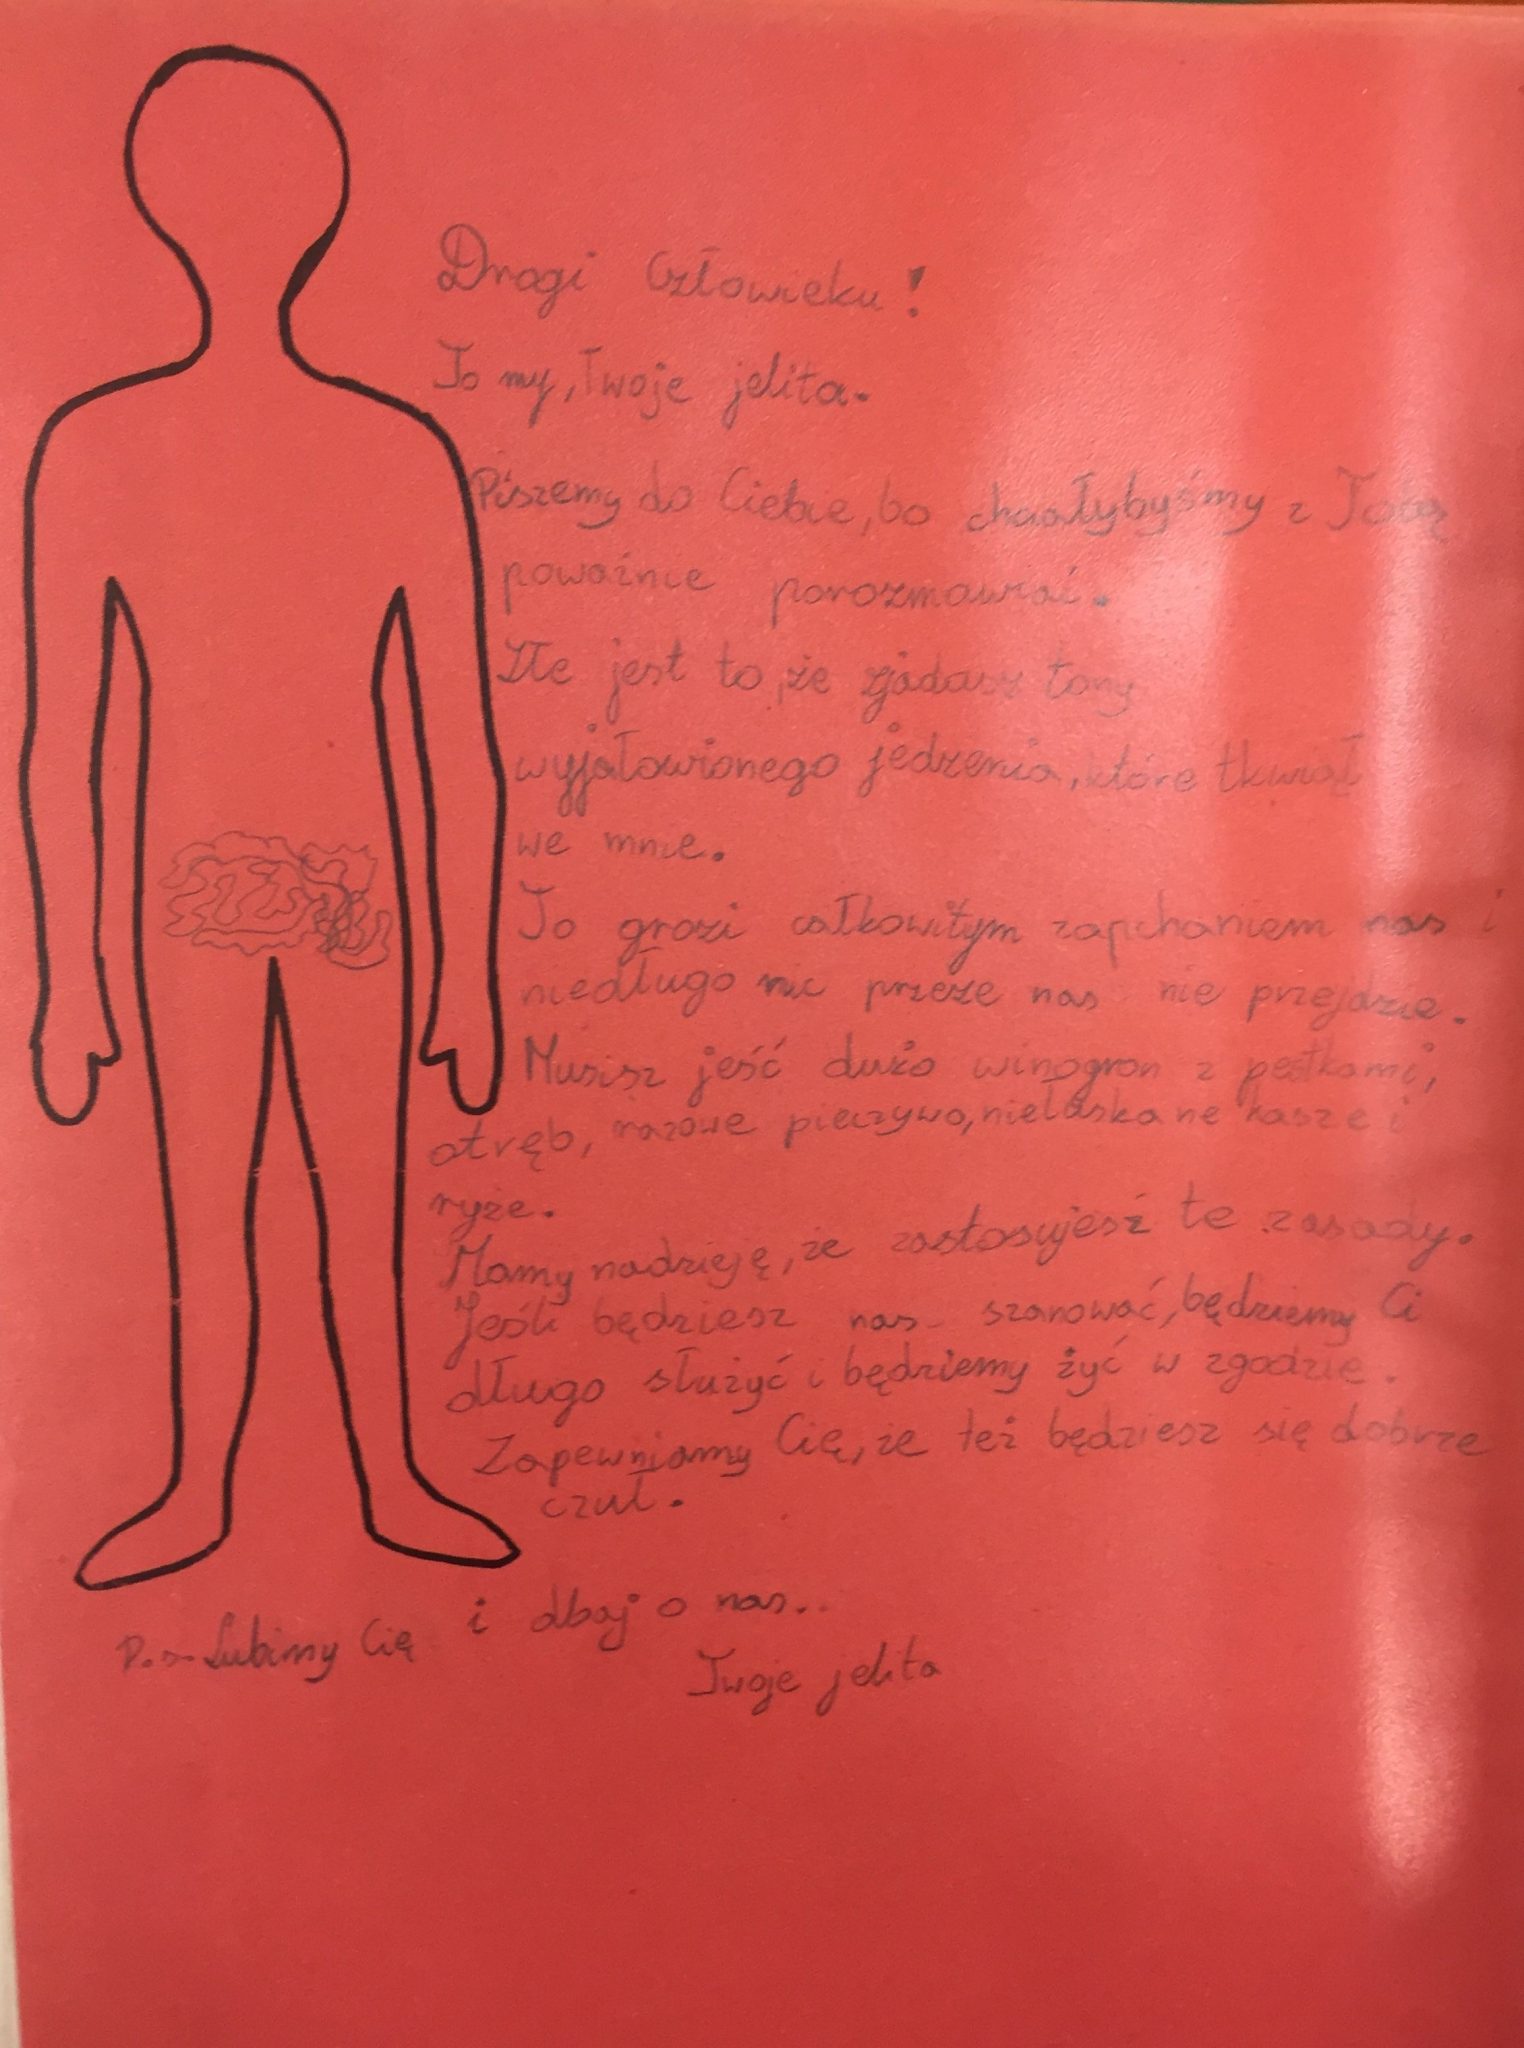 Drogi Człowieku!
To my, Twoje jelita.
Piszemy do Ciebie, bo chciałybyśmy z Tobą
poważnie porozmawiać.
Złe jest to, że zjadasz tony
wyjałowionego jedzenia, które tkwią
we mnie.
To grozi całkowitym zapchaniem nas i
niedługo nic przeze nas nie przejdzie.
Musisz jeść dużo winogron z pestkami,
otręb, razowe pieczywo, niełuskane kasze i
ryże.
Mamy nadzieję, że zastosujesz te zasady.
Jeśli będziesz nas szanować, będziemy Ci
długo służyć i będziemy żyć w zgodzie.
Zapewniamy Cię, że też będziesz się dobrze
czuł.
P.s. Lubimy Cię i dbaj o nas..
Twoje jelita